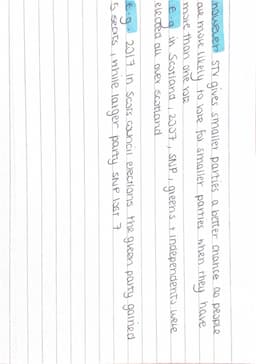 however STV gives smaller parties a better chance as people
are more likely to vote for smaller parties when they have
more than one vote
E.g. in Scotland, 2007, SNP, greens + independents were
elected all over scotland
E.g. 2017 in Scots council elections the green party gained
5 seats, while larger party SNP lost 7